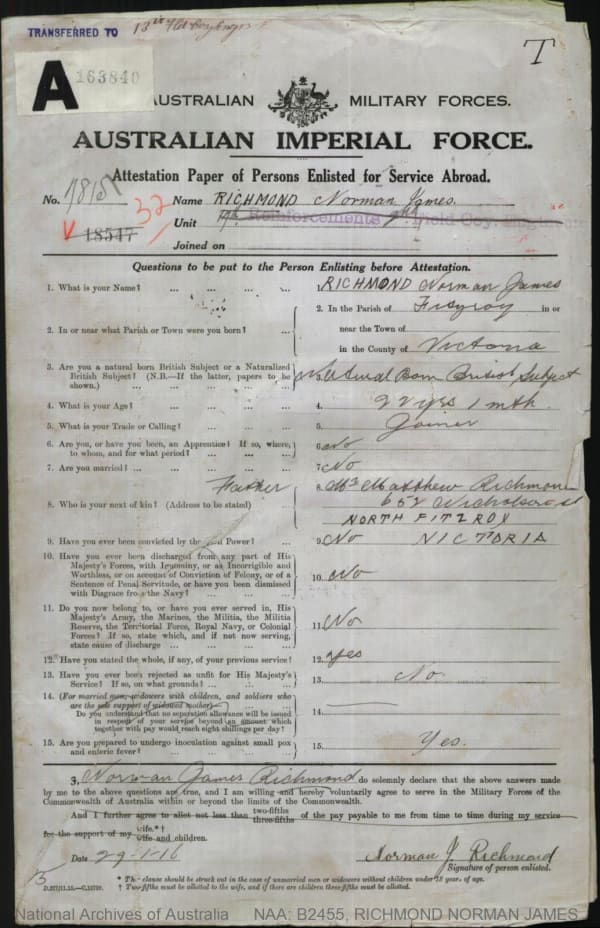 TRANSFERRED TO 13th Fld Coy Engrs
T
A 163840
AUSTRALIAN MILITARY FORCES.
AUSTRALIAN IMPERIAL FORCE.
Attestation Paper of Persons Enlisted for Service Abroad.
No. 7815 32 Name RICHMOND Norman James.
V 18547 Unit Reinforcements Field Coy. Engineers
Joined on
Questions to be put to the Person Enlisting before Attestation.
1. What is your Name? ... ... ... ... 1. RICHMOND Norman James
2. In or near what Parish or Town were you born? ... 2. In the Parish of Fitzroy in or
near the Town of
in the County of Victoria
3. Are you a natural born British Subject or a Naturalized
British Subject? (N.B.—If the latter, papers to be
shown.) ... ... ... ... 3. Natural Born British Subject
4. What is your Age? ... ... ... ... 4. 22 yrs 1 mth.
5. What is your Trade or Calling? ... ... ... 5. Joiner
6. Are you, or have you been, an Apprentice? If so, where,
to whom, and for what period? ... ... ... 6. No
7. Are you married? ... ... ... ... 7. No
Father
8. Who is your next of kin? (Address to be stated) ... 8. Mr Matthew Richmond
652 Nicholson St
NORTH FITZROY
VICTORIA
9. Have you ever been convicted by the Civil Power? ... 9. No
10. Have you ever been discharged from any part of His
Majesty's Forces, with Ignominy, or as Incorrigible and
Worthless, or on account of Conviction of Felony, or of a
Sentence of Penal Servitude, or have you been dismissed
with Disgrace from the Navy? ... ... ... 10. No
11. Do you now belong to, or have you ever served in, His
Majesty's Army, the Marines, the Militia, the Militia
Reserve, the Territorial Force, Royal Navy, or Colonial
Forces? If so, state which, and if not now serving,
state cause of discharge ... ... ... 11. No
12. Have you stated the whole, if any, of your previous service? 12. yes
13. Have you ever been rejected as unfit for His Majesty's
Service? If so, on what grounds? ... ... ... 13. No.
14. (For married men, widowers with children, and soldiers who
are the sole support of widowed mother)
Do you understand that no separation allowance will be issued
in respect of your service beyond an amount which
together with pay would reach eight shillings per day? 14. —
15. Are you prepared to undergo inoculation against small pox
and enteric fever? ... ... ... ... 15. Yes.
I, Norman James Richmond do solemnly declare that the above answers made
by me to the above questions are true, and I am willing and hereby voluntarily agree to serve in the Military Forces of the
Commonwealth of Australia within or beyond the limits of the Commonwealth.
And I further agree to allot not less than two-fifths three-fifths of the pay payable to me from time to time during my service
for the support of my wife.*† wife and children.
Date 29-1-16 Norman J. Richmond
Signature of person enlisted.
* This clause should be struck out in the case of unmarried men or widowers without children under 18 years of age.
† Two-fifths must be allotted to the wife, and if there are children three-fifths must be allotted.
National Archives of Australia NAA: B2455, RICHMOND NORMAN JAMES